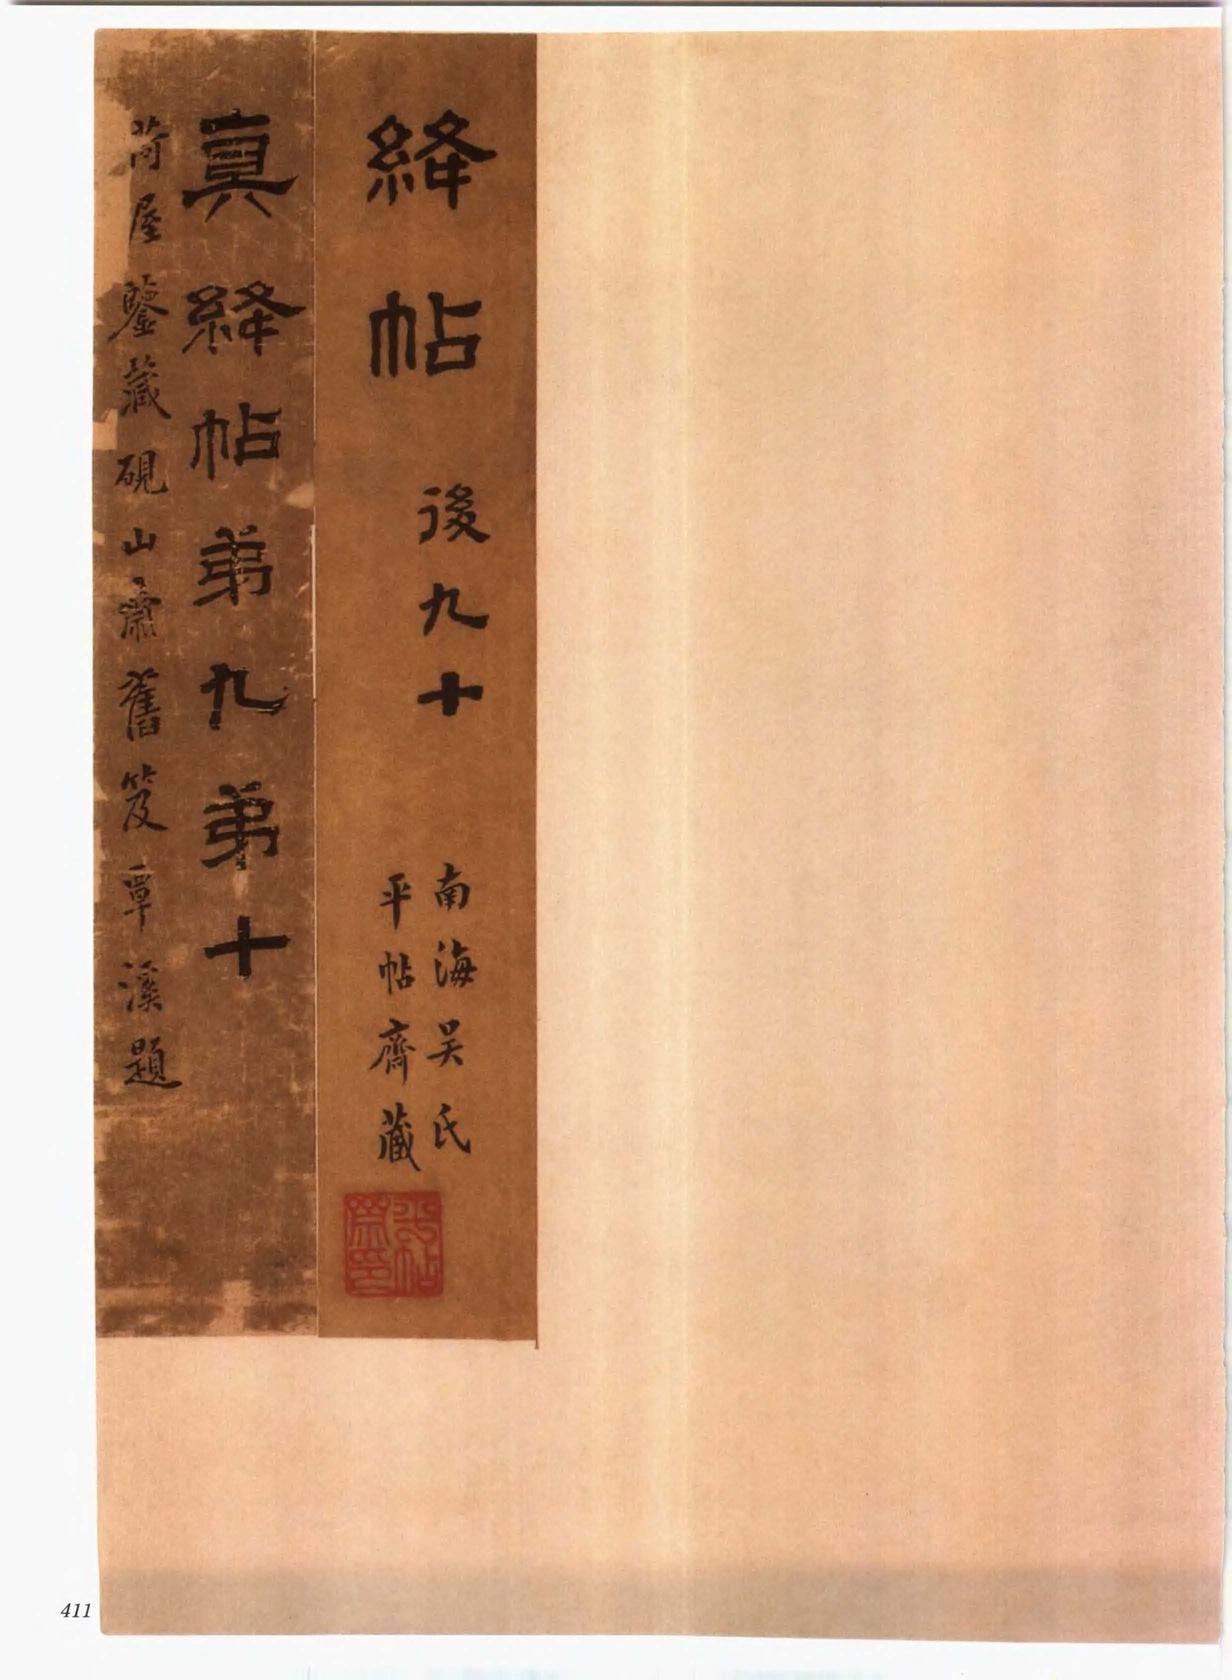 絳帖
後九十
南海吴氏
平帖齋藏
真絳帖弟九弟十
荷屋鑒藏硯山齋舊笈覃溪題
411